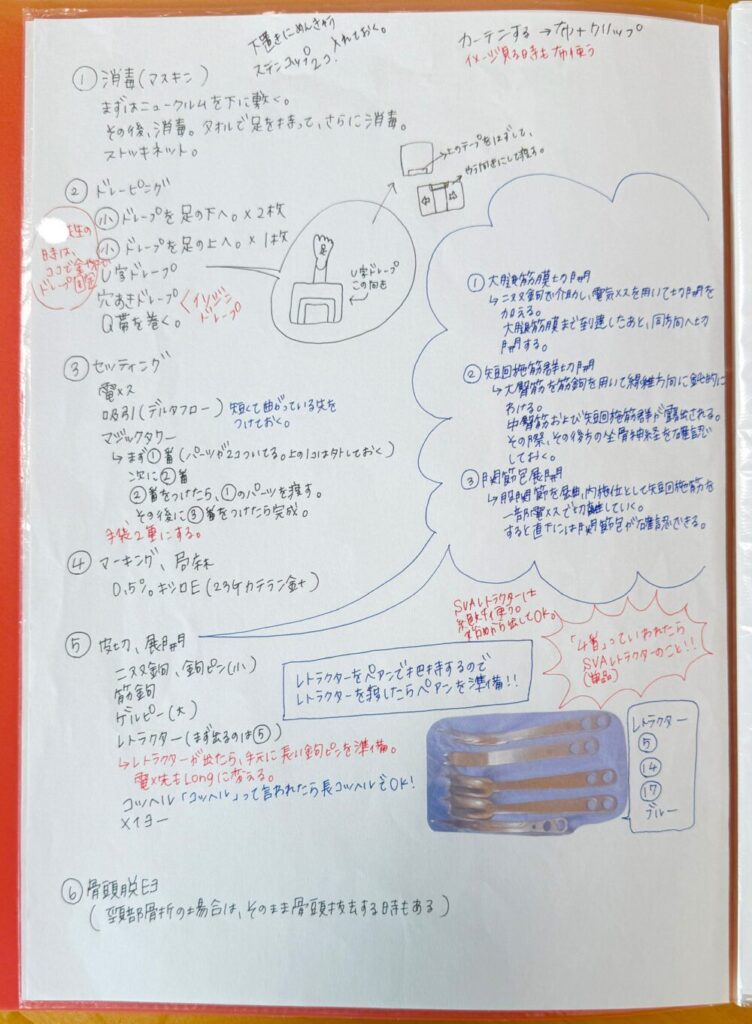 下書きにめんきゅう
ステンコップ2コ 入れておく。
カーテンする → 布+クリップ
イメージ見る時も布使う
① 消毒(マスキン)
まずはニュークルムを下に敷く。
その後、消毒。タオルで足を持って、さらに消毒。
ストッキネット。
② ドレーピング
小ドレープを足の下へ。×2枚
小ドレープを足の上へ。×1枚
U字ドレープ
穴あきドレープ
Q帯を巻く。
イソジンドレープ
先生の
時は、
ココで
ドレープ固定
足
U字ドレープ
この向き
上のテープをはずして、
やう向きにして渡す。
③ セッティング
電メス
吸引(デルタフロー) 短くて曲がっている先を
つけておく。
マジックタワー
↳まず①番(パーツが2コついてる。上の1コはハズしておく)
次に②番
②番をつけたら、①のパーツを渡す。
その後に③番をつけたら完成。
手袋2重にする。
④ マーキング、局麻
0.5%キシロE(23Gカテラン針)
⑤ 皮切、展開
二爪鈎、鈎ピン(小)
筋鈎
ゲルピー(大)
レトラクター(まず出るのは⑤)
↳レトラクターが出たら、手元に長い鈎ピンを準備。
電メス先もLongに変える。
コッヘル「コッヘル」って言われたら長コッヘルでOK!
メイヨー
① 大腿筋膜切開
↳二爪鈎で介助し、電気メスを用いて切開を
加える。
大腿筋膜まで到達したあと、同方向へ切
開する。
② 短回旋筋群切開
↳大臀筋を筋鈎を用いて線維方向に鈍的に
わける。
中臀筋および短回旋筋群が露出される。
その際、その後方の坐骨神経を確認
しておく。
③ 関節包展開
↳股関節を屈曲、内旋位として短回旋筋を
一部電メスで切離していく。
すると直下には関節包が確認できる。
SVAレトラクターは
絶対使う。
始めから出してOK。
「4番」っていわれたら
SVAレトラクターのこと!!
(単品)
レトラクターをペアンで把持するので
レトラクターを渡したらペアンを準備!!
レトラクター
⑤
⑭
⑰
ブルー
⑥ 骨頭脱臼
(頚部骨折の場合は、そのまま骨頭抜去する時もある)